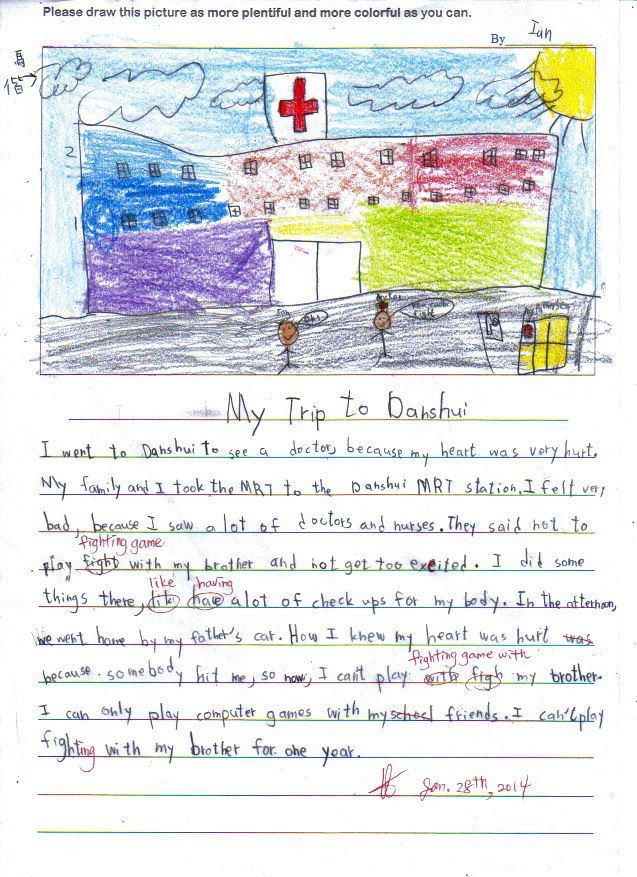 Please draw this picture as more plentiful and more colorful as you can.
By Ian
2
1
My Trip to Danshui
I went to Danshui to see a doctor, because my heart was very hurt.
My family and I took the MRT to the Danshui MRT station. I felt very
bad, because I saw a lot of doctors and nurses. They said not to
fighting game
play fight with my brother and not get too excited. I did some
like having
things there, lik have a lot of check ups for my body. In the afternoon,
we went home by my father's car. How I knew my heart was hurt was
fighting game with
because somebody hit me, so now, I can't play with figh my brother.
I can only play computer games with my school friends. I can't play
fighting with my brother for one year.
Jan. 28th, 2014